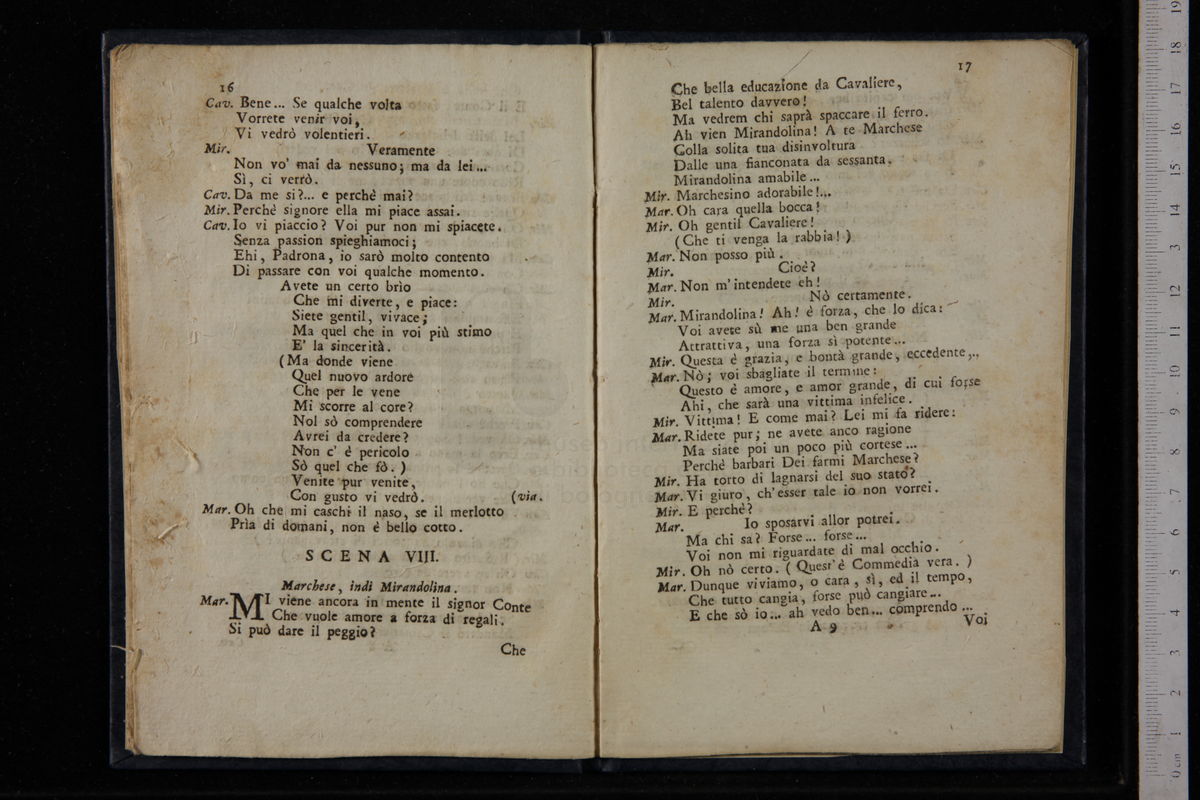 16
Cav. Bene... Se qualche volta
Vorrete venir voi,
Vi vedrò volentieri.
Mir. Veramente
Non vo' mai da nessuno; ma da lei...
Sì, ci verrò.
Cav. Da me si?... e perchè mai?
Mir. Perchè signore ella mi piace assai.
Cav. Io vi piaccio? Voi pur non mi spiacete.
Senza passion spieghiamoci;
Ehi, Padrona, io sarò molto contento
Di passare con voi qualche momento.
Avete un certo brìo
Che mi diverte, e piace:
Siete gentil, vivace;
Ma quel che in voi più stimo
E' la sincerità.
(Ma donde viene
Quel nuovo ardore
Che per le vene
Mi scorre al core?
Nol sò comprendere
Avrei da credere?
Non c' è pericolo
Sò quel che fò. )
Venite pur venite,
Con gusto vi vedrò. (via.
Mar. Oh che mi caschi il naso, se il merlotto
Prìa di domani, non è bello cotto.
SCENA VIII.
Marchese, indi Mirandolina.
Mar. MI viene ancora in mente il signor Conte
Che vuole amore a forza di regali.
Si può dare il peggio?
Che
17
Che bella educazione da Cavaliere,
Bel talento davvero!
Ma vedrem chi saprà spaccare il ferro.
Ah vien Mirandolina! A te Marchese
Colla solita tua disinvoltura
Dalle una fianconata da sessanta.
Mirandolina amabile...
Mir. Marchesino adorabile!...
Mar. Oh cara quella bocca!
Mir. Oh gentil Cavaliere!
(Che ti venga la rabbia! )
Mar. Non posso più.
Mir. Cioè?
Mar. Non m'intendete eh!
Mir. Nò certamente.
Mar. Mirandolina! Ah! è forza, che lo dica:
Voi avete sù me una ben grande
Attrattiva, una forza sì potente...
Mir. Questa è grazia, e bontà grande, eccedente...
Mar. Nò; voi sbagliate il termine:
Questo è amore, e amor grande, di cui forse
Ahi, che sarà una vittima infelice.
Mir. Vittima! E come mai? Lei mi fa ridere:
Mar. Ridete pur; ne avete anco ragione
Ma siate poi un poco più cortese...
Perchè barbari Dei farmi Marchese?
Mir. Ha torto di lagnarsi del suo stato?
Mar. Vi giuro, ch'esser tale io non vorrei.
Mir. E perchè?
Mar. Io sposarvi allor potrei.
Ma chi sa? Forse... forse...
Voi non mi riguardate di mal occhio.
Mir. Oh nò certo. ( Quest'è Commedia vera. )
Mar. Dunque viviamo, o cara, sì, ed il tempo,
Che tutto cangia, forse può cangiare...
E che sò io... ah vedo ben... comprendo...
A 9 Voi